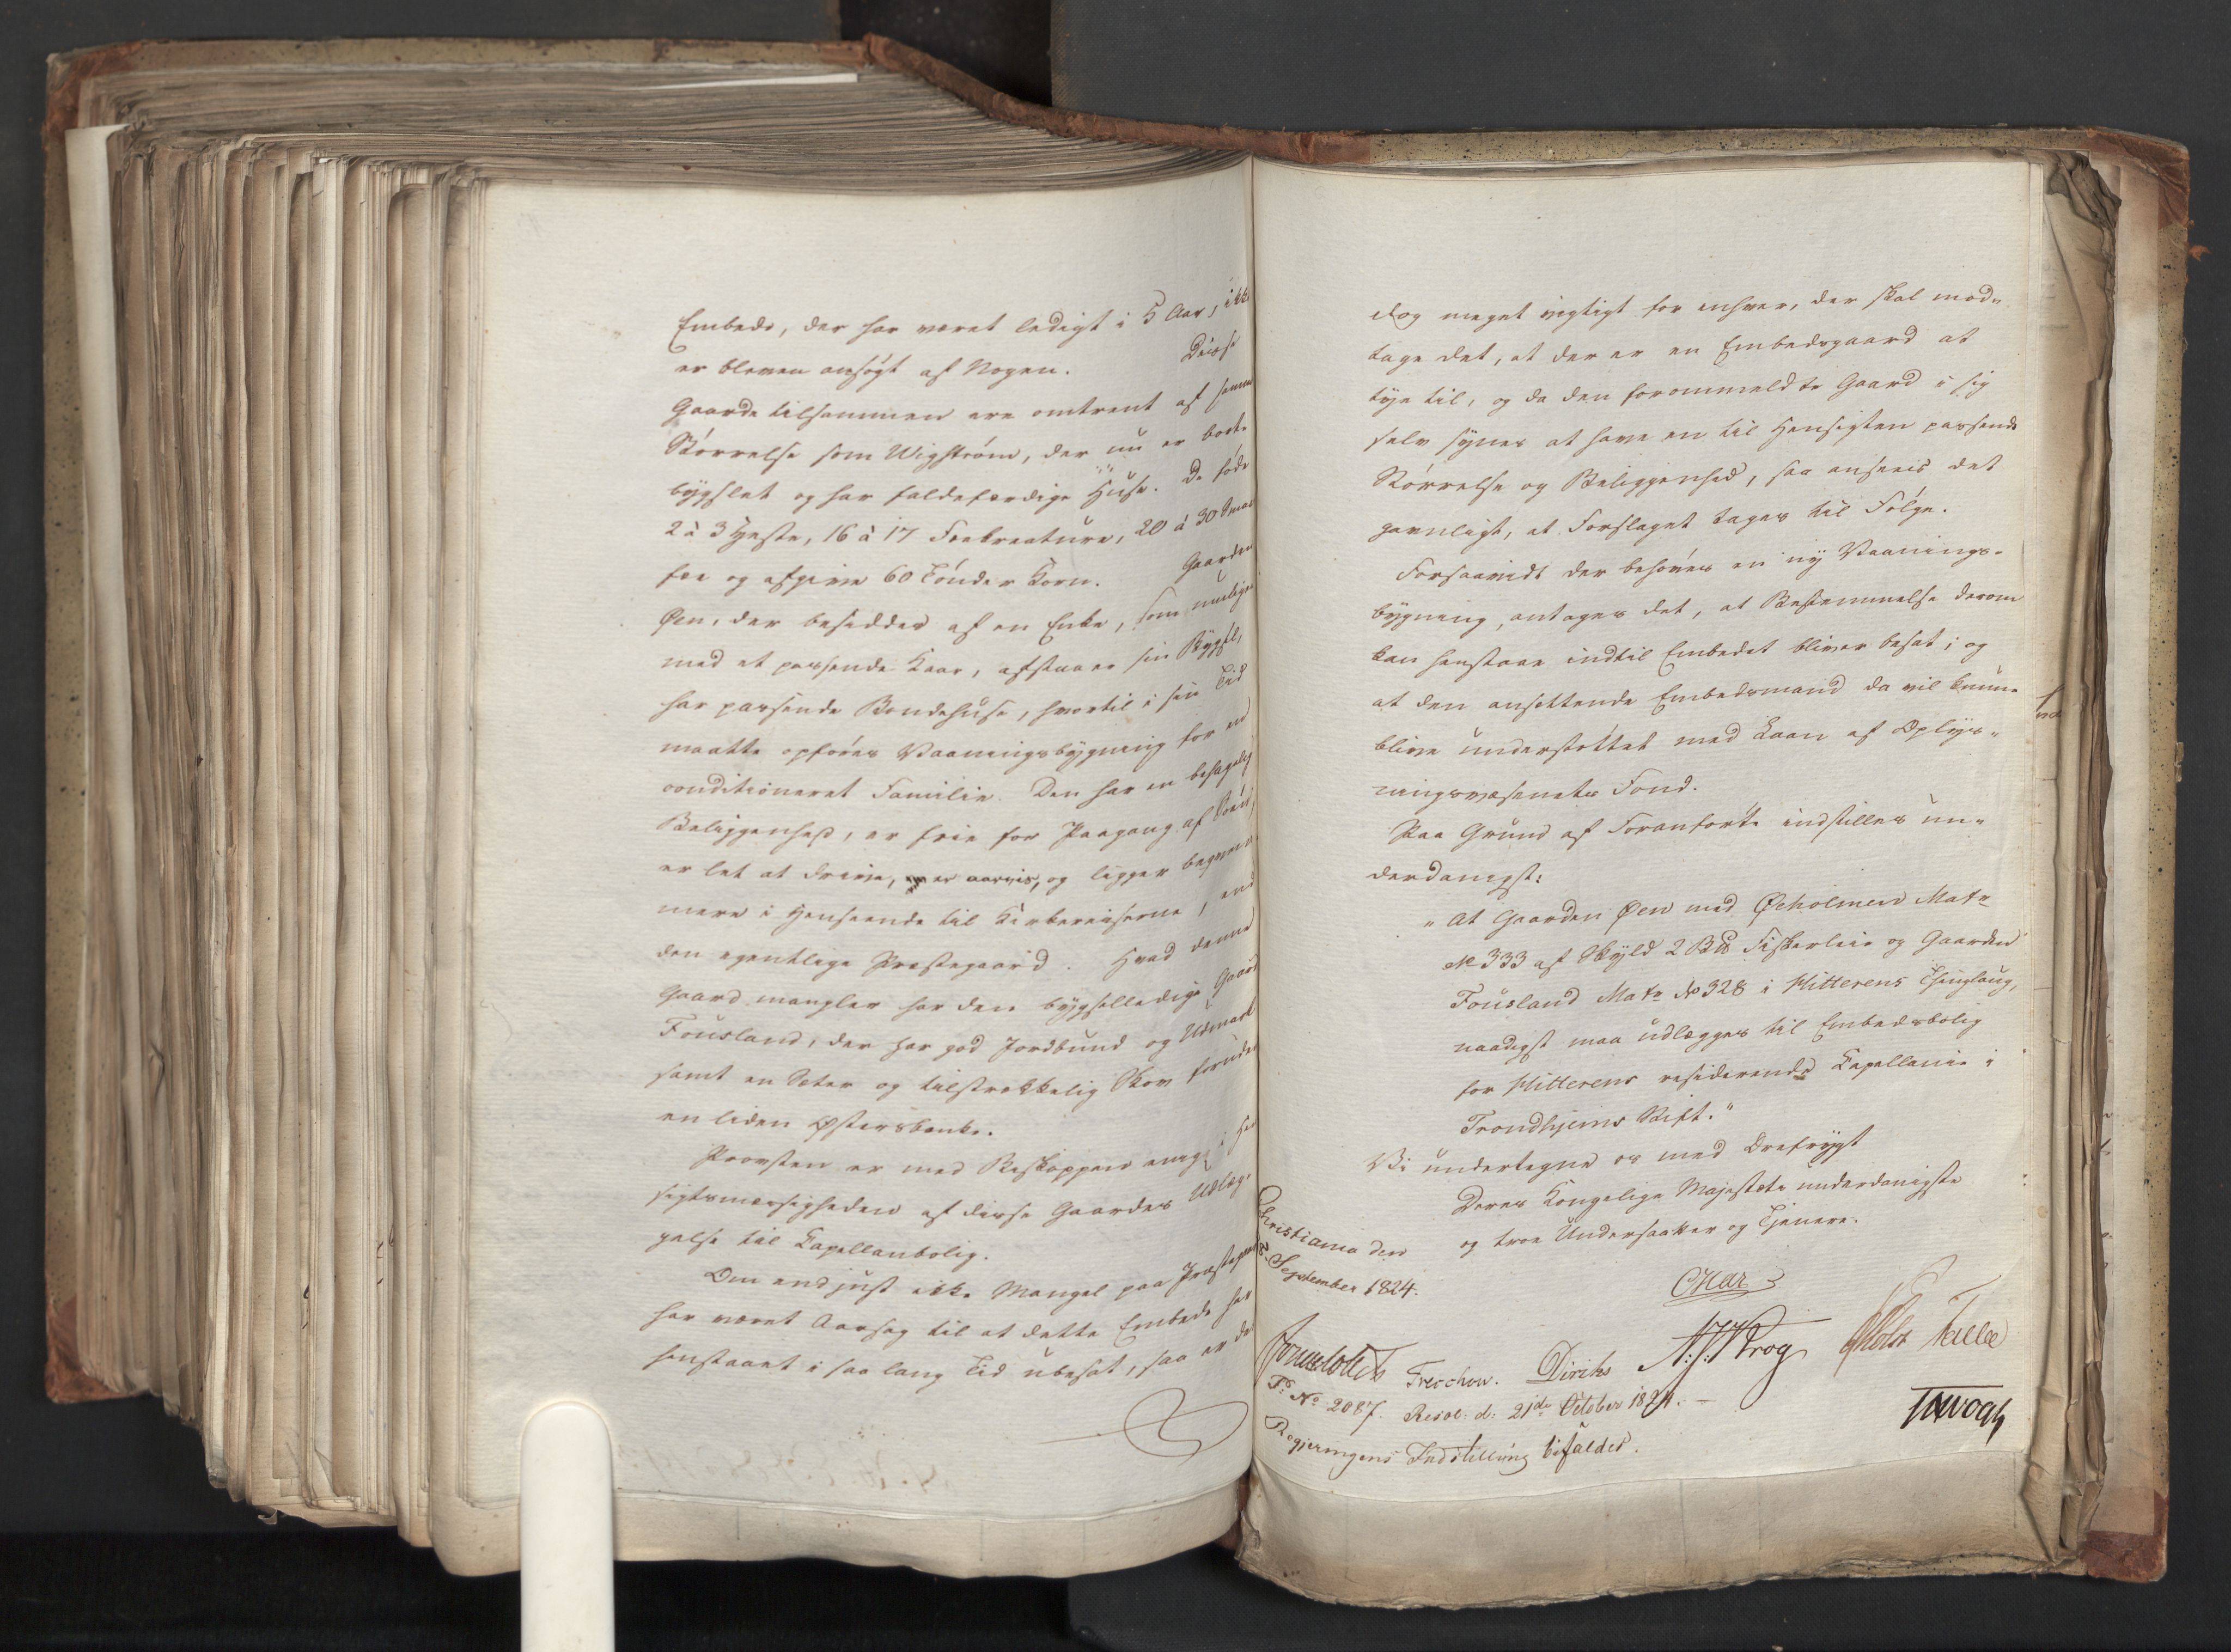 Embede, der har været ledigt i 5 Aar, ikke
er bleven ansögt af Nogen. Disse
Gaarde tilsammen ere omtrent af samme
Störrelse som Wigström, der nu er bort-
bygslet og har faldefærdige Huse. De föde
2 à 3 Heste, 16 à 17 Fækreature, 20 à 30 Smaa
fæe og afgive 60 Tönder Korn. Gaarden
Öen, der besiddes af en Enke, som muligen
mod et passende Kaar, afstaaer sin Bygsel,
har passende Bondehuse, hvortil i sin Tid
maatte opföres Vaaningsbygning for en
conditioneret Familie. Den har en behagelig
Beliggenhed, er frie for Paagang af
er let at drive, er aarvis, og ligger beqvem
mere i Henseende til Kirkereiserne, end
den egentlige Præstegaard. Hvad denne
Gaard mangler har den bygselledige Gaard
Fousland, der har god Jordbund og Udmark
samt en Sæter og tilstrækkelig Skov foruden
en liden Østersbanke.
Provsten er med Biskoppen enig i Hen
sigtsmæssigheden af disse Gaardes Udlæg-
gelse til Capellanbolig.
Om end just ikke Mangel paa Præstegaard
har været Aarsag til at dette Embede har
henstaaet i saa lang Tid ubesat, saa er det
dog meget vigtigt for enhver, der skal mod-
tage det, at der er en Embedsgaard at
tye til, og da den forommeldte Gaard i sig
selv synes at have en til Hensigten passende
Störrelse og Beliggenhed, saa ansees det
gavnligt, at Forslaget tages til Fölge.
Forsaavidt der behöves en ny Vaanings-
bygning, antages det, at Bestemmelse derom
kan henstaae indtil Embedet bliver besat; og
at den ansættende Embedsmand da vil kunne
blive understöttet med Laan af Oplys-
ningsvæsenets Fond.
Paa Grund af Foranförte indstilles un-
derdanigst:
"At Gaarden Øen med Øeholmen Matr
No 333 af Skyld 2 Bpd Fiskerleie og Gaarden
Fousland Matr No 328 i Hitterens Thinglaug,
naadigst maa udlægges til Embedsbolig
for Hitterens residerende Capellanie i
Trondhjems Stift."
Vi undertegne os med Ærefrygt
Deres Kongelige Majestæts underdanigste
og troe Undersaatter og Tjenere.
Christiania den
September 1824.
CHar
Sommerhielm Treschow. Diriks A: J: Krog PHolst Fasting
TJ Vogt
P: No 2087. Resol: d: 21de October 1824. -
Regjeringens Indstilling bifaldes.